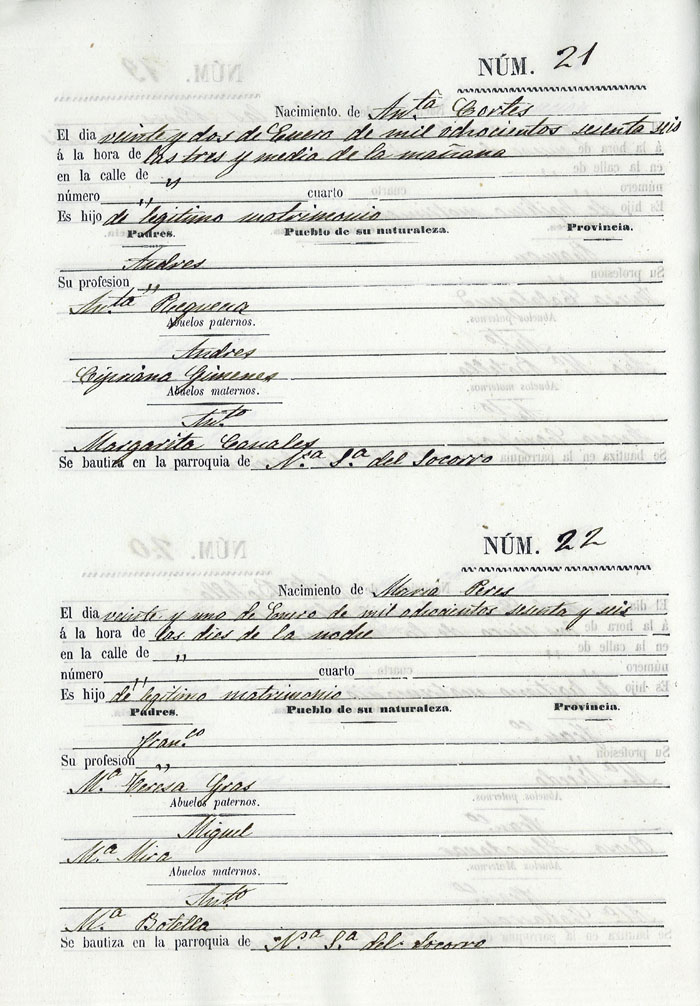 NÚM. 21
Nacimiento de Anta Cortes
El dia veinte y dos de Enero de mil ochocientos sesenta seis
á la hora de las tres y media de la mañana
en la calle de "
número " cuarto
Es hijo de legitimo matrimonio
Padres. Pueblo de su naturaleza. Provincia.
Andres
Su profesion "
Anta Requena
Abuelos paternos.
Andres
Cipriana Gimenes
Abuelos maternos.
Anto
Margarita Canales
Se bautiza en la parroquia de Na Sa del Socorro
NÚM. 22
Nacimiento de Maria Peres
El dia veinte y uno de Enero de mil ochocientos sesenta y seis
á la hora de las dies de la noche
en la calle de "
número " cuarto
Es hijo de legitimo matrimonio
Padres. Pueblo de su naturaleza. Provincia.
Franco
Su profesion "
Ma Teresa Gras
Abuelos paternos.
Miguel
Ma Mira
Abuelos maternos.
Anto
Ma Botella
Se bautiza en la parroquia de Na Sa del Socorro